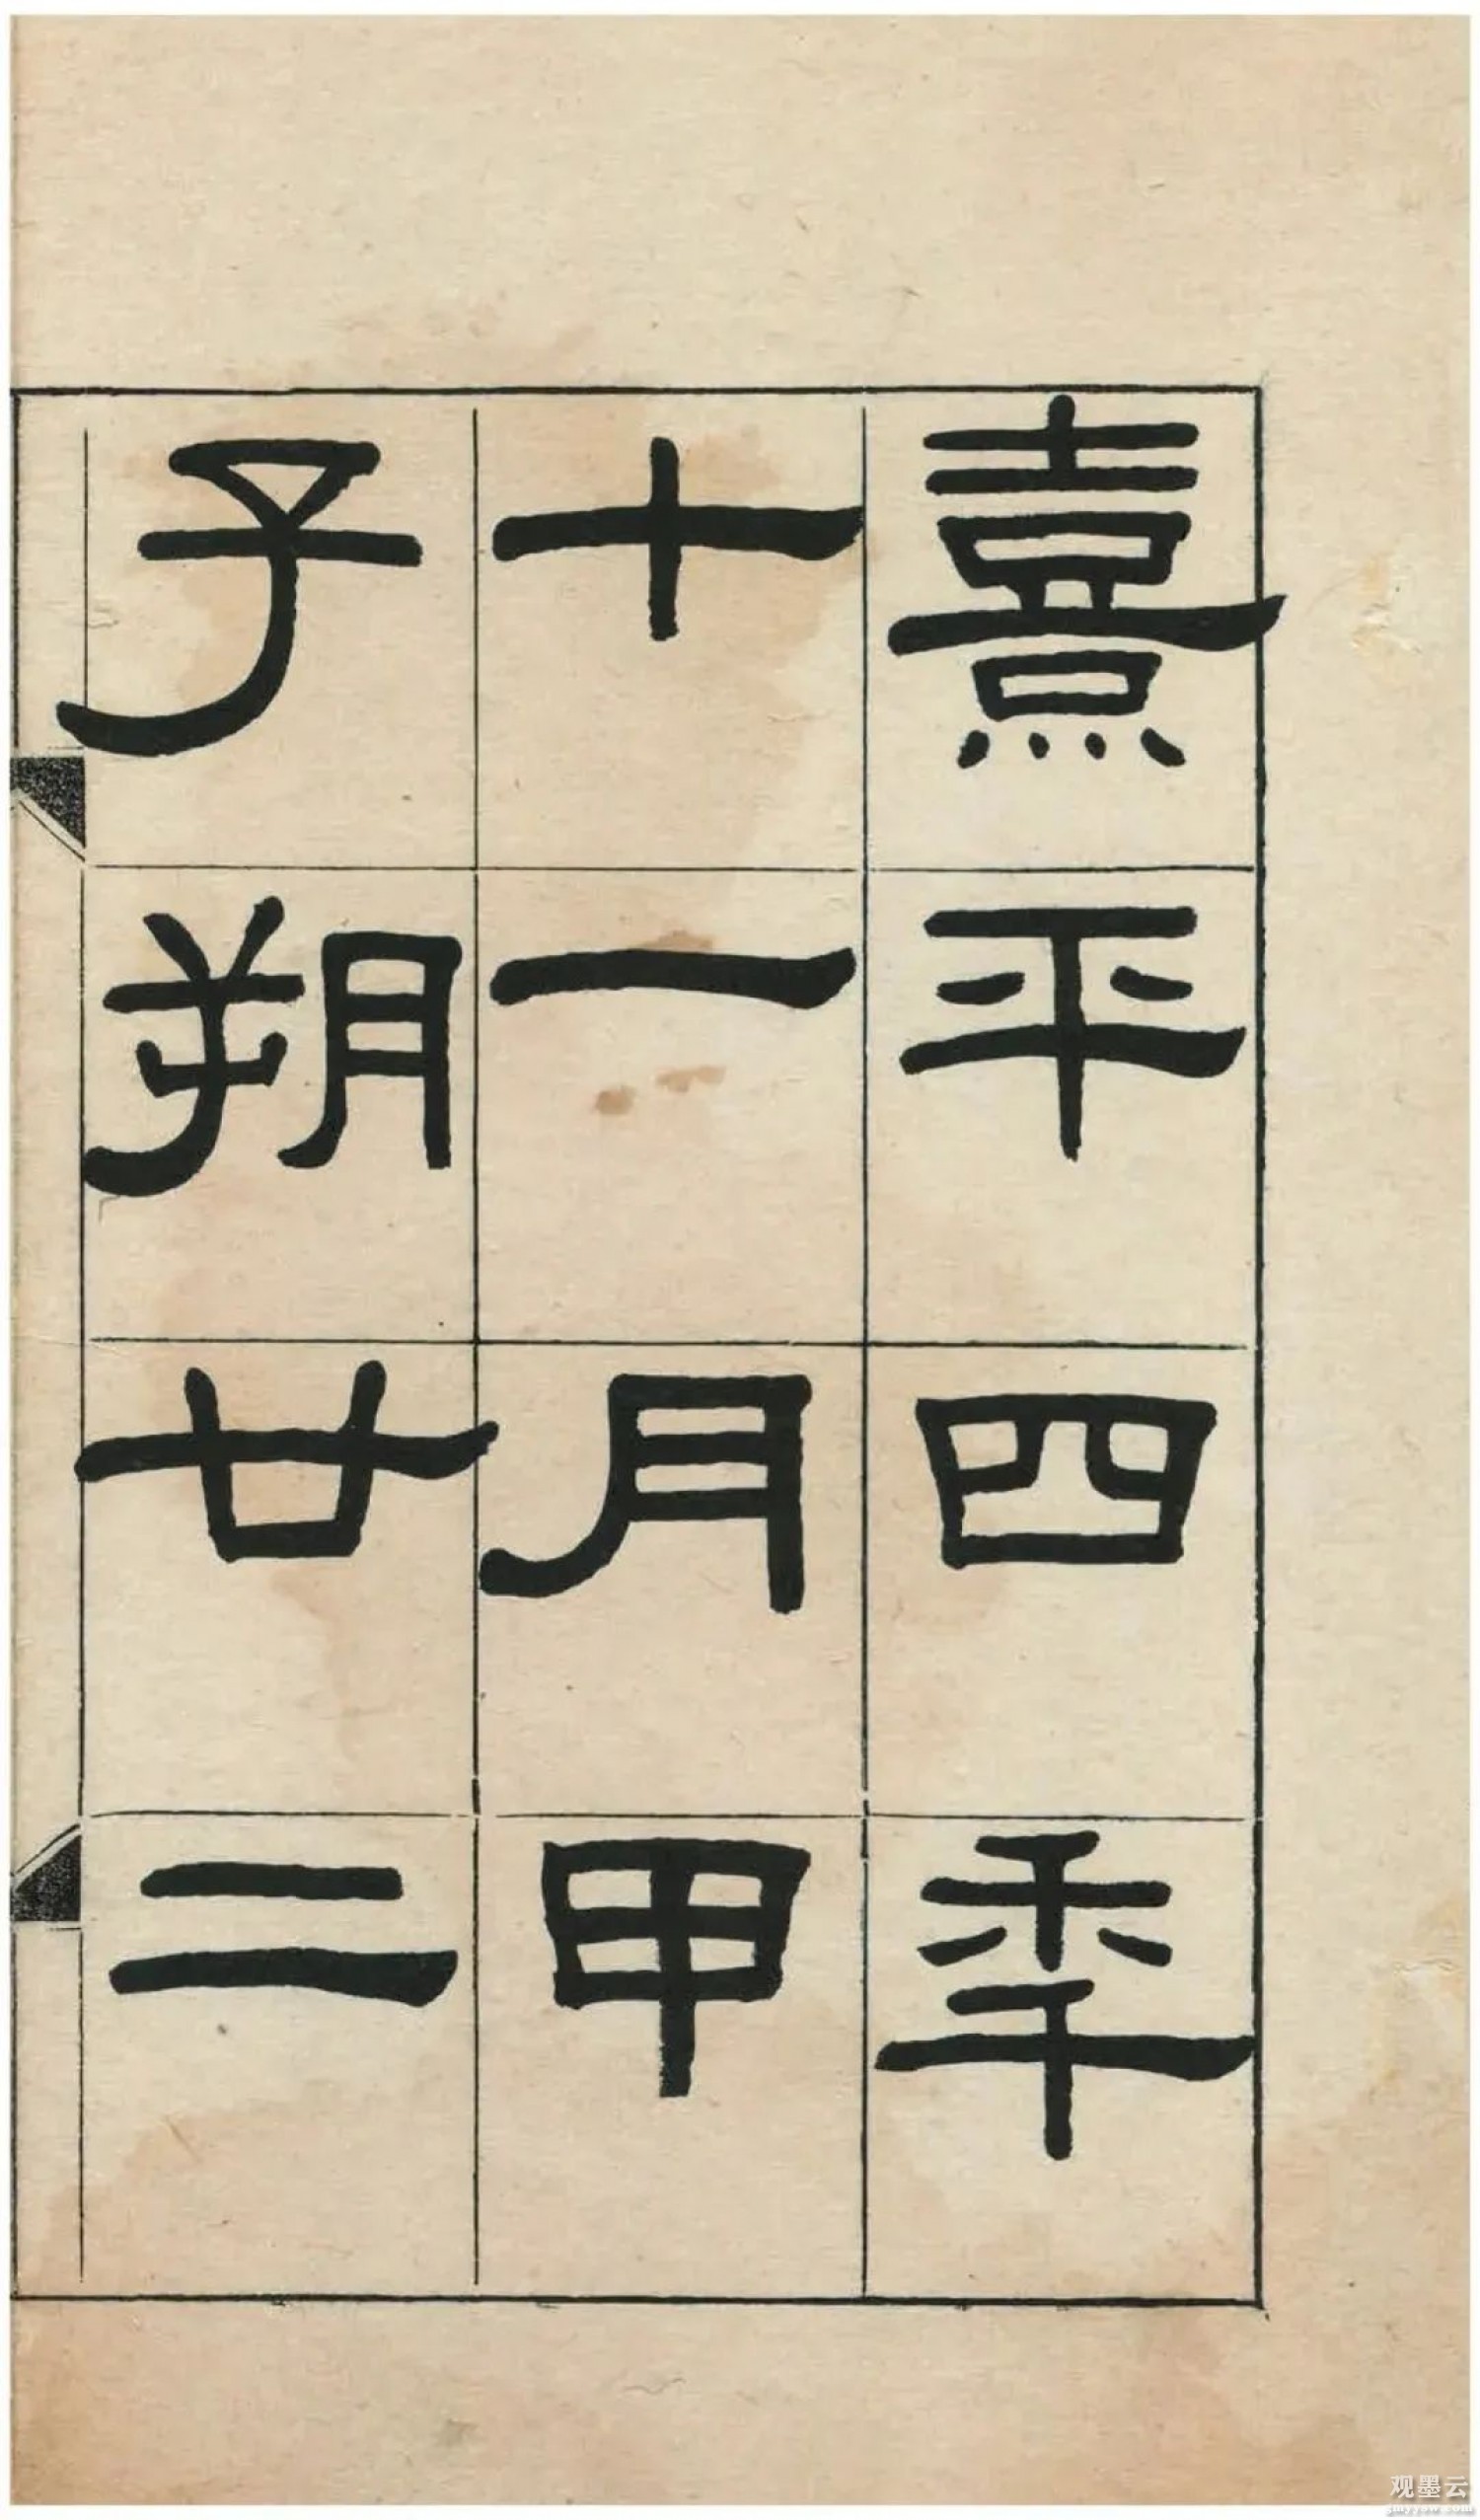 熹平四秊
十一月甲
子朔廿二
观墨云